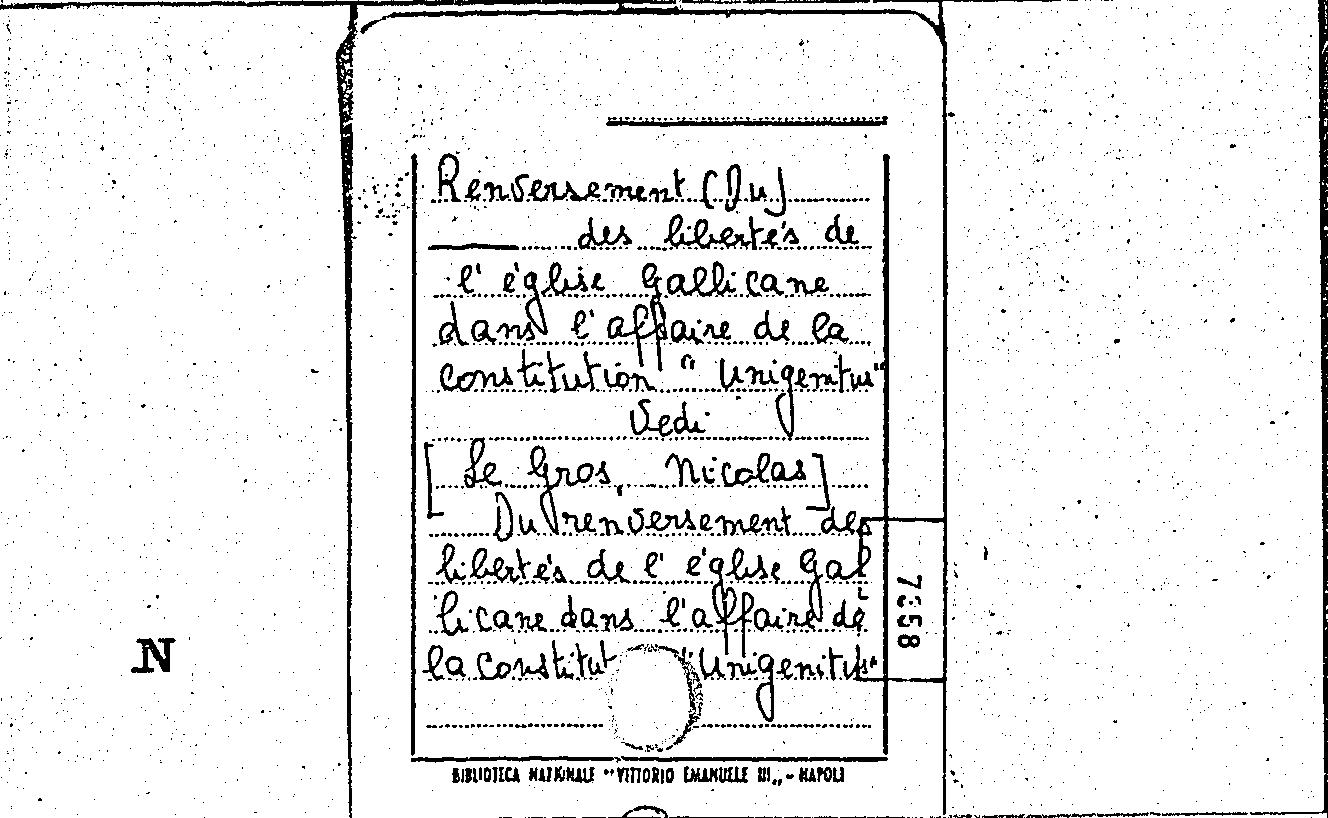 Renversement (Du)
des libertés de
l' église Gallicane
dans l'affaire de la
constitution "Unigenitus"
Vedi
[Le Gros, Nicolas]
Du renversement des
libertés de l' église Gal
licane dans l'affaire de
la Constitut "Unigenitus"
BIBLIOTECA NAZIONALE "VITTORIO EMANUELE III„ - NAPOLI
N